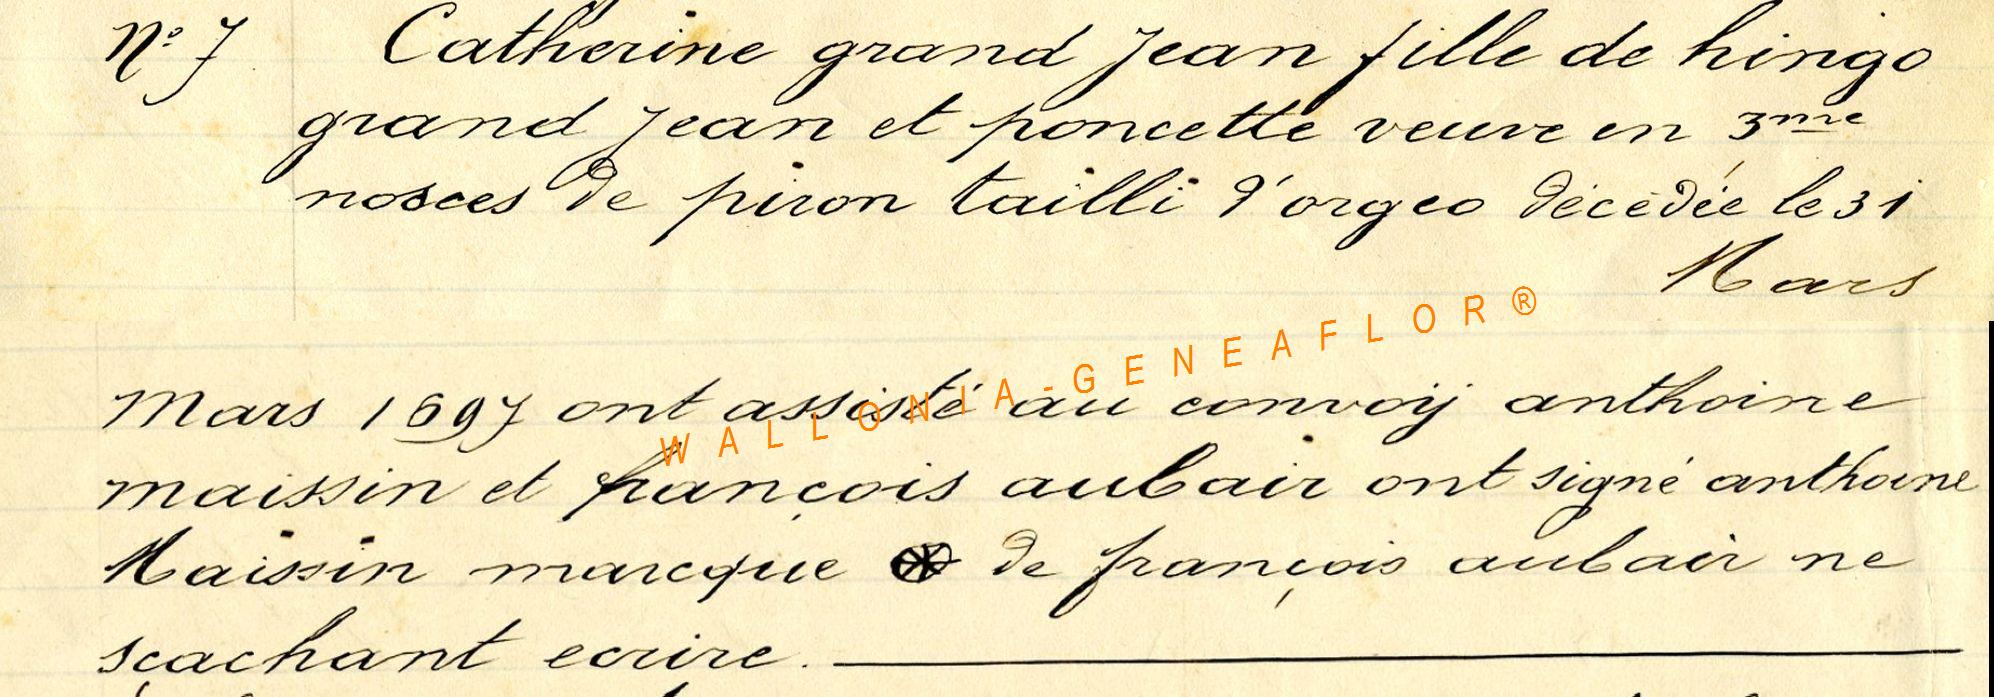 N° 7 Catherine grand Jean fille de hingo
grand Jean et poncette veuve en 3me
nosces de piron tailli d'orgeo décédée le 31
Mars
WALLONIA-GENEAFLOR®
Mars 1697 ont assisté au convoij anthoine
maissin et françois aubair ont signé anthoine
Maissin marcque de françois aubair ne
sçachant ecrire.